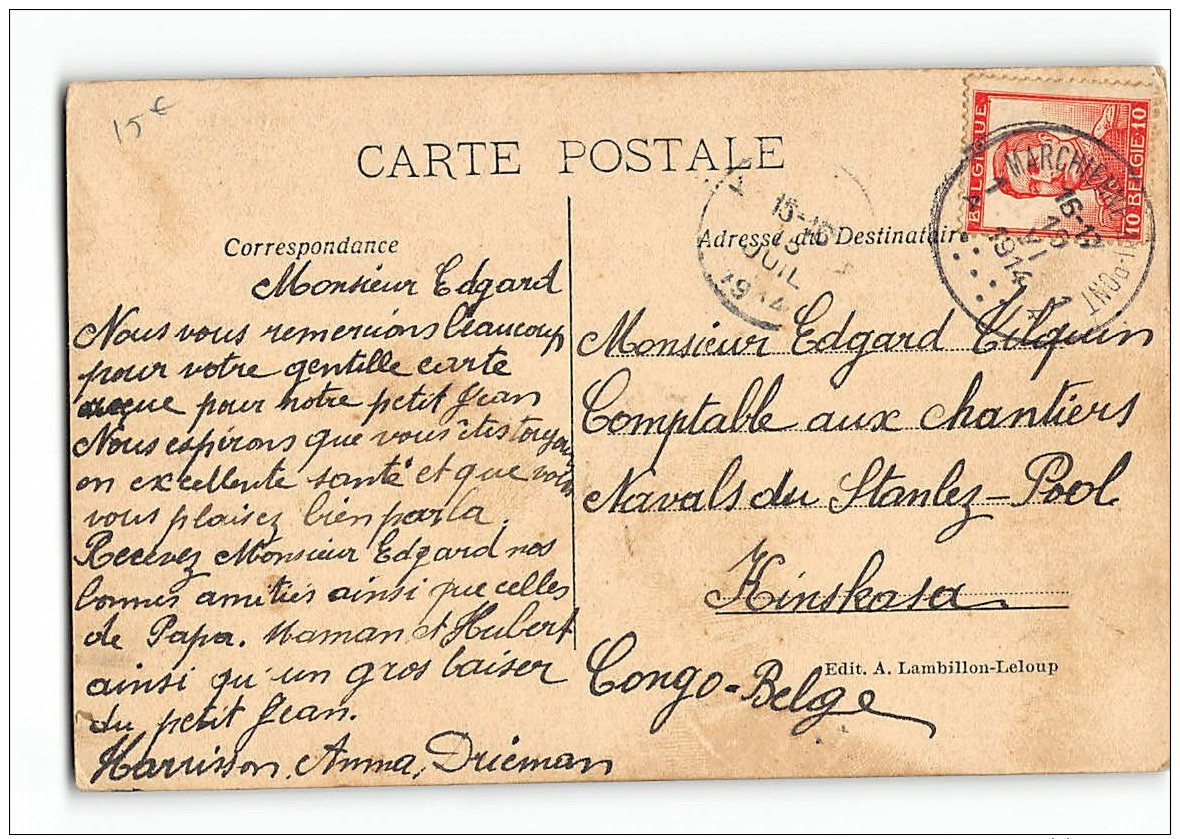 15€
CARTE POSTALE
Correspondance
Adresse du Destinataire
BELGIQUE. 10 BELGIE 10
MARCHIENNE-AU-PONT
16-17
10
VI
1914
15-16
JUIL
1914
Monsieur Edgard
Nous vous remercions beaucoup
pour votre gentille carte
reçue pour notre petit Jean
Nous espérons que vous êtes toujours
en excellente santé et que vous
vous plaisez bien par la.
Recevez Monsieur Edgard nos
bonnes amitiés ainsi que celles
de Papa. Maman et Hubert
ainsi qu'un gros baiser
du petit Jean.
Harrisson, Anna, Drieman
Monsieur Edgard Tilquin
Comptable aux chantiers
Navals du Stanley-Pool
Kinskasa
Congo-Belge
Edit. A. Lambillon-Leloup